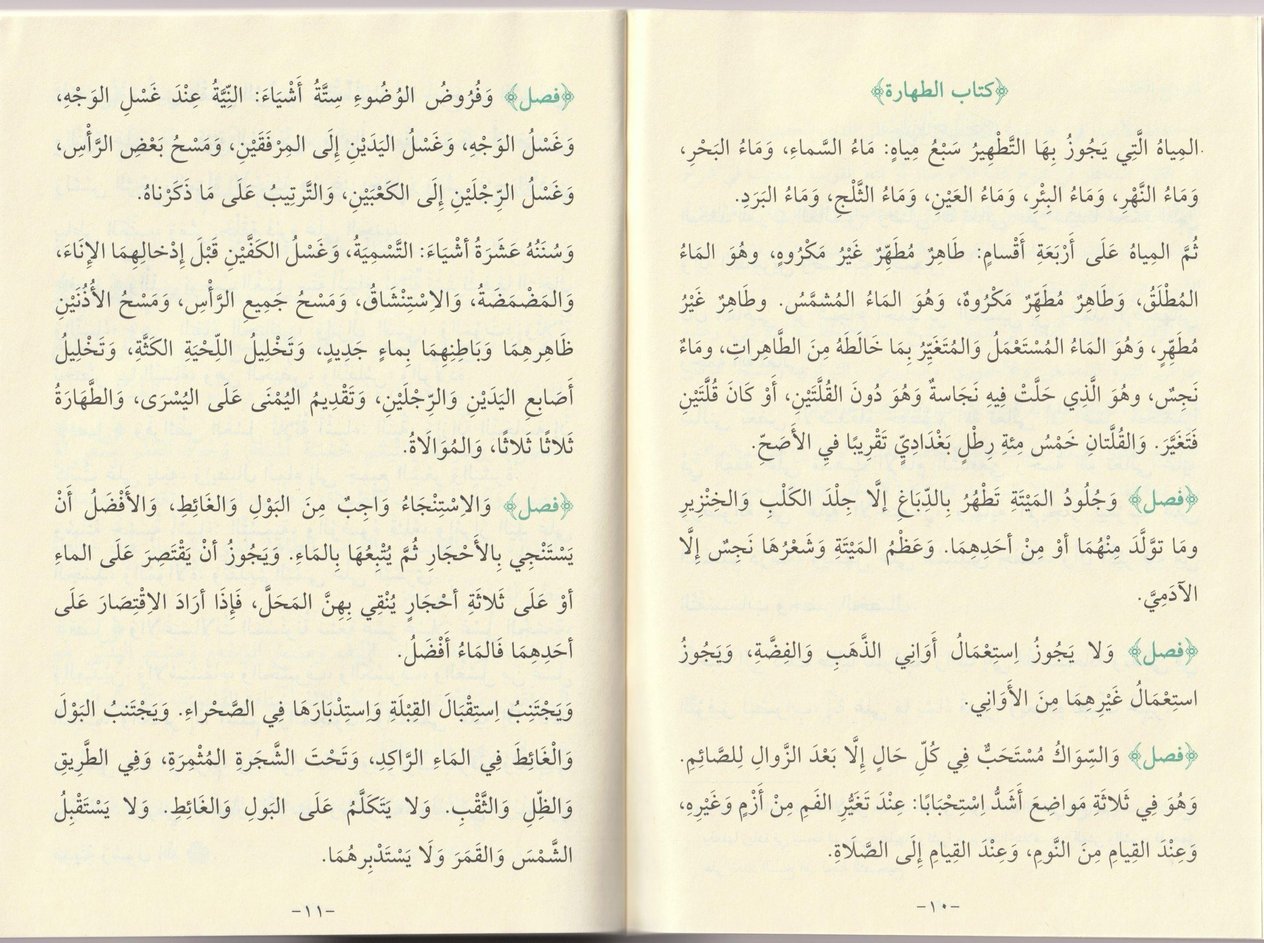 ﴿كتاب الطهارة﴾
المِياهُ الَّتِي يَجُوزُ بِهَا التَّطْهِيرُ سَبْعُ مِياهٍ: مَاءُ السَّماءِ، وَمَاءُ البَحْرِ،
وَمَاءُ النَّهْرِ، وَمَاءُ البِئْرِ، وَمَاءُ العَيْنِ، وَمَاءُ الثَّلْجِ، وَمَاءُ البَرَدِ.
ثُمَّ المِياهُ عَلَى أَرْبَعَةِ أَقْسامٍ: طَاهِرٌ مُطَهِّرٌ غَيْرُ مَكْرُوهٍ، وهُوَ المَاءُ
المُطْلَقُ، وَطَاهِرٌ مُطَهِّرٌ مَكْرُوهٌ، وَهُوَ المَاءُ المُشمَّسُ. وطَاهِرٌ غَيْرُ
مُطَهِّرٍ، وَهُوَ المَاءُ المُسْتَعْمَلُ وَالمُتَغَيِّرُ بِمَا خَالَطَهُ مِنَ الطَّاهِراتِ، ومَاءٌ
نَجِسٌ، وهُوَ الَّذِي حَلَّتْ فِيهِ نَجَاسةٌ وَهُوَ دُونَ القُلَّتَيْنِ، أَوْ كَانَ قُلَّتَيْنِ
فَتَغَيَّرَ. وَالقُلَّتانِ خَمْسُ مِئةِ رِطْلٍ بَغْدَادِيٍّ تَقْرِيبًا فيِ الأَصَحِّ.
﴿فصل﴾ وَجُلُودُ المَيْتَةِ تَطْهُرُ بِالدِّبَاغِ إلَّا جِلْدَ الكَلْبِ وَالخِنْزِيرِ
ومَا تَوَّلَّدَ مِنْهُمَا أوْ مِنْ أحَدِهِمَا. وَعَظْمُ المَيْتَةِ وَشَعْرُهَا نَجِسٌ إلَّا
الآدَمِيَّ.
﴿فصل﴾ وَلا يَجُوزُ اِستِعْمَالُ أَوَانِي الذَّهَبِ وَالفِضَّةِ، وَيَجُوزُ
استِعْمَالُ غَيْرِهِمَا مِنَ الأَوَانِي.
﴿فصل﴾ وَالسِّوَاكُ مُسْتَحَبٌّ فِي كُلِّ حَالٍ إلَّا بَعْدَ الزَّوالِ لِلصَّائِمِ.
وَهُوَ فِي ثَلاثَةِ مَواضِعَ أَشَدُّ اِسْتِحْبَابًا: عِنْدَ تَغَيُّرِ الفَمِ مِنْ أَزْمٍ وَغَيْرِهِ،
وَعِنْدَ القِيامِ مِنَ النَّومِ، وَعِنْدَ القِيامِ إِلَى الصَّلَاةِ.
-١٠-
﴿فصل﴾ وَفُرُوضُ الوُضُوءِ سِتَّةُ أَشْيَاءَ: النِّيَّةُ عِنْدَ غَسْلِ الوَجْهِ،
وَغَسْلُ الوَجْهِ، وَغَسْلُ اليَدَيْنِ إلَى المِرْفَقَيْنِ، وَمَسْحُ بَعْضِ الرَّأْسِ،
وَغَسْلُ الرِّجْلَيْنِ إلَى الكَعْبَيْنِ، وَالتَّرتِيبُ عَلَى مَا ذَكَرْناهُ.
وَسُنَنُهُ عَشَرَةُ أشْيَاءَ: التَّسْمِيَةُ، وَغَسْلُ الكَفَّيْنِ قَبْلَ إدْخالِهِمَا الإنَاءَ،
وَالمَضْمَضَةُ، وَالاِسْتِنْشَاقُ، وَمَسْحُ جَمِيعِ الرَّأْسِ، وَمَسْحُ الأُذُنَيْنِ
ظَاهِرهِمَا وَبَاطِنِهِمَا بِماءٍ جَدِيدٍ، وَتَخْلِيلُ اللِّحْيَةِ الكَثَّةِ، وَتَخْلِيلُ
أَصَابعِ اليَدَيْنِ وَالرِّجْلَيْنِ، وَتَقْدِيمُ اليُمْنَى عَلَى اليُسْرَى، وَالطَّهَارَةُ
ثَلاثًا ثَلاثًا، وَالمُوَالَاةُ.
﴿فصل﴾ وَالاسْتِنْجَاءُ وَاجِبٌ مِنَ البَوْلِ وَالغَائِطِ، وَالأَفْضَلُ أَنْ
يَسْتَنْجِي بِالأَحْجَارِ ثُمَّ يُتْبِعُهَا بِالمَاءِ. وَيَجُوزُ أنْ يَقْتَصِرَ عَلَى الماءِ
أوْ عَلَى ثَلاثَةِ أحْجَارٍ يُنْقِي بِهِنَّ المَحَلَّ، فَإِذَا أرَادَ الاِقْتِصَارَ عَلَى
أحَدِهِمَا فَالمَاءُ أَفْضَلُ.
وَيَجْتَنِبُ اِستِقْبَالَ القِبْلَةِ وَاِستِدْبَارَهَا فِي الصَّحْراءِ. وَيَجْتَنبُ البَوْلَ
وَالْغَائِطَ فِي المَاءِ الرَّاكِدِ، وَتَحْتَ الشَّجَرَةِ المُثْمِرَةِ، وَفِي الطَّرِيقِ
وَالظِّلِ وَالثَّقْبِ. وَلا يَتَكَلَّمُ عَلَى البَولِ وَالغَائِطِ. وَلا يَسْتَقْبِلُ
الشَّمْسَ وَالقَمَرَ وَلَا يَسْتَدْبِرهُمَا.
-١١-